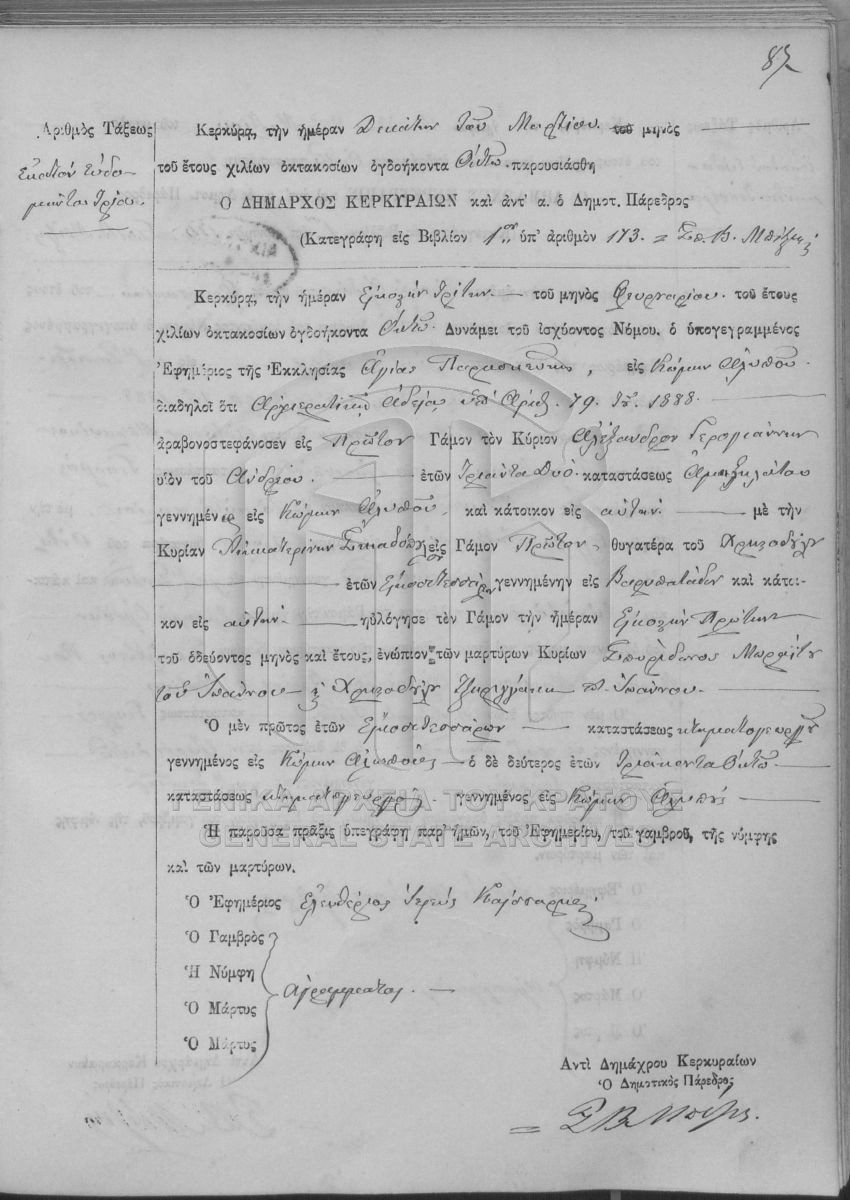 87
Ἀριθμὸς Τάξεως
Ἑκατὸν ἑβδο-
μηκοντα τρία.
Κερκύρᾳ, τὴν ἡμέραν Δεκάτην τοῦ Μαρτίου. τοῦ μηνὸς
τοῦ ἔτους χιλίων ὀκτακοσίων ὀγδοήκοντα Ὀκτώ. παρουσιάσθη
Ὁ ΔΗΜΑΡΧΟΣ ΚΕΡΚΥΡΑΙΩΝ καὶ ἀντ' α. ὁ Δημοτ. Πάρεδρος
(Κατεγράφη εἰς Βιβλίον 1ον ὑπ' ἀριθμὸν 173 = Σπ. Β.
Κερκύρᾳ, τὴν ἡμέραν Εἰκοστὴν τρίτην — τοῦ μηνὸς Φεβρουαρίου. τοῦ ἔτους
χιλίων ὀκτακοσίων ὀγδοήκοντα Ὀκτώ. Δυνάμει τοῦ ἰσχύοντος Νόμου. ὁ ὑπογεγραμμένος
Ἐφημέριος τῆς Ἐκκλησίας Ἁγίας Παρασκευῆς, εἰς Κώμην Ἀλυποῦ.
διαδηλοῖ ὅτι Ἀρχιερατικῇ Ἀδείᾳ ὑπ' Ἀριθ. 79. 1888.
ἀραβονοστεφάνοσεν εἰς Πρῶτον Γάμον τὸν Κύριον Ἀλέξανδρον Γερογιάννην
υἱὸν τοῦ Ἀνδρέου. — ἐτῶν Τριάντα Δυό. καταστάσεως
γεννημέν εἰς Κώμην Ἀλυποῦ, καὶ κάτοικον εἰς αὐτήν. — μὲ τὴν
Κυρίαν Αἰκατερίνην εἰς Γάμον Πρῶτον — θυγατέρα τοῦ
— ἐτῶν Εἰκοσιτεσσάρων γεννημένην εἰς Βαρυπατάδων καὶ κάτοι-
κον εἰς αὐτήν. — ηὐλόγησε τὸν Γάμον τὴν ἡμέραν Εἰκοστὴν Πρώτην
τοῦ ὁδεύοντος μηνὸς καὶ ἔτους, ἐνώπιον τῶν μαρτύρων Κυρίων Σπυρίδωνος
τοῦ Ἰωάννου π. Ἰωάννου. —
Ὁ μὲν πρῶτος ἐτῶν Εἰκοσιτεσσάρων — καταστάσεως κτηματογεωργοῦ
γεννημένος εἰς Κώμην — ὁ δὲ δεύτερος ἐτῶν Τριάκοντα Ὀκτώ —
καταστάσεως κτηματογεωργοῦ. γεννημένος εἰς Κώμην —
ΓΕΝΙΚΑ ΑΡΧΕΙΑ ΤΟΥ ΚΡΑΤΟΥΣ
Ἡ παροῦσα πρᾶξις ὑπεγράφη παρ' ἡμῶν, τοῦ Ἐφημερίου, τοῦ γαμβροῦ, τῆς νύμφης
GENERAL STATE ARCHIVES
καὶ τῶν μαρτύρων.
Ὁ Ἐφημέριος Ἐλευθέριος Ἱερεὺς
Ὁ Γαμβρὸς
Ἡ Νύμφη
ἀγράμματοι. —
Ὁ Μάρτυς
Ὁ Μάρτυς
Αντὶ Δημάχρου Κερκυραίων
Ὁ Δημοτικὸς Πάρεδρος